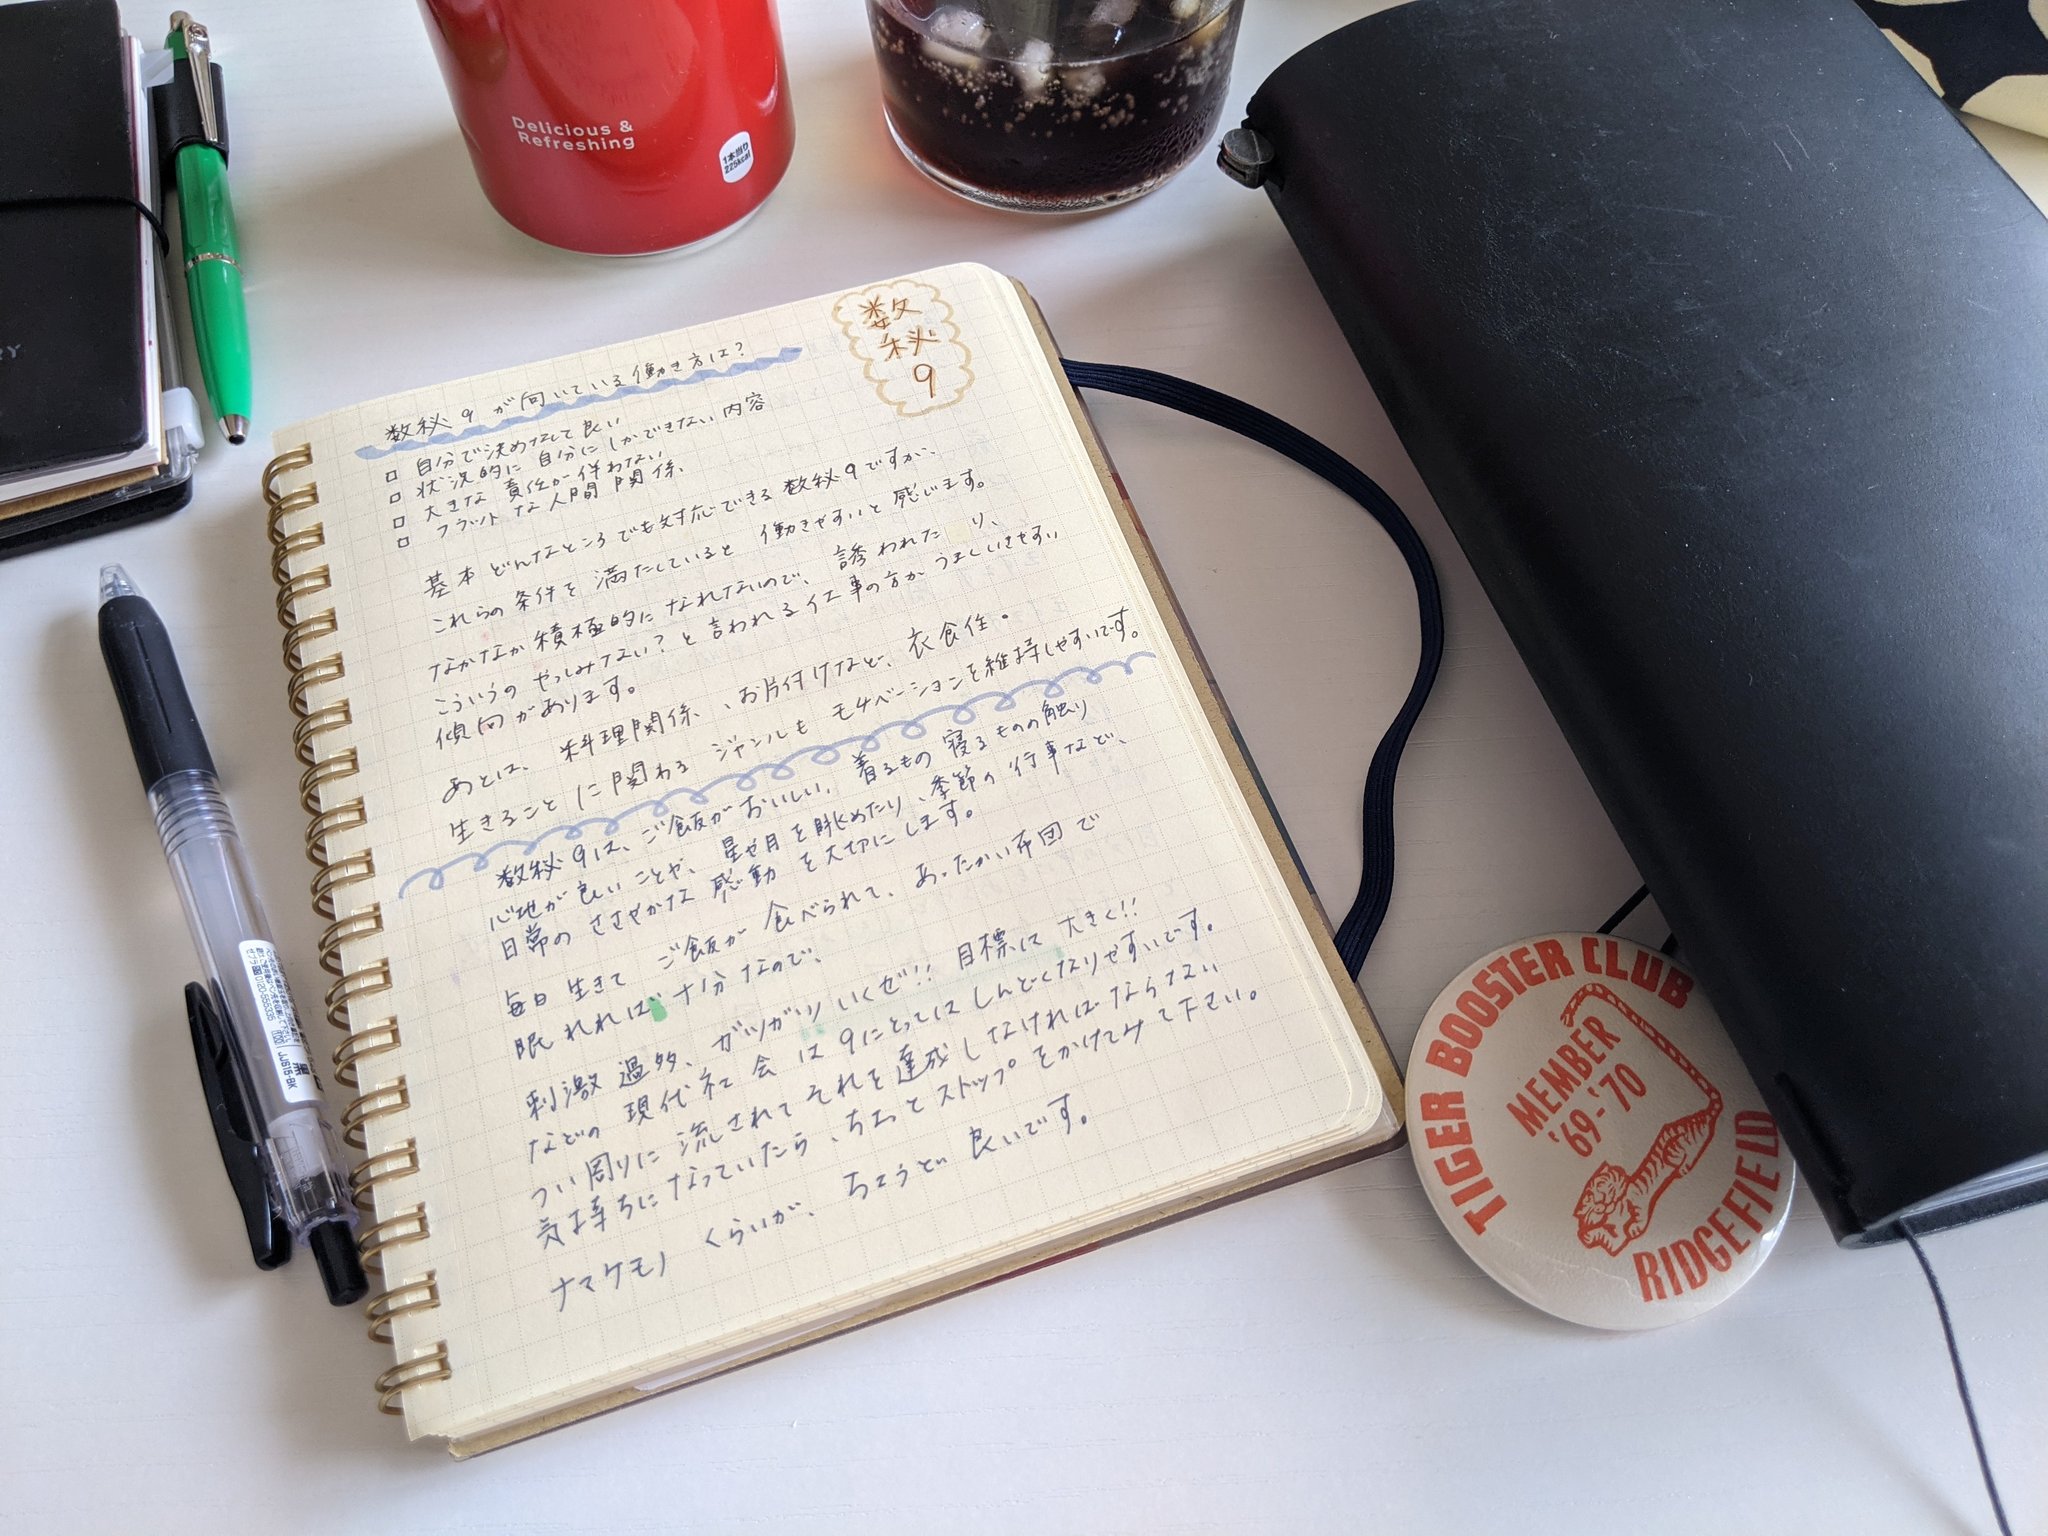 Delicious &
Refreshing
1本当り
225kcal
数
秘
9
数秘9が向いている働き方は?
□ 自分で決めなくて良い
□ 状況的に自分にしかできない内容
□ 大きな責任が伴わない
□ フラットな人間関係
基本どんなところでも対応できる数秘9ですが、
これらの条件を満たしていると働きやすいと感じます。
なかなか積極的になれないので、誘われたり、
こういうのやってみない?と言われる仕事の方がうまくいきやすい
傾向があります。
あとは、料理関係、お片付けなど、衣食住。
生きることに関わるジャンルもモチベーションを維持しやすいです。
数秘9は、ご飯がおいしい、着るもの寝るものの触り
心地が良いことや、星や月を眺めたり、季節の行事など、
日常のささやかな感動を大切にします。
毎日生きてご飯が食べられて、あったかい布団で
眠れれば十分なので、
刺激過多、ガツガツいくぜ!!目標は大きく!!
などの現代社会は9にとってはしんどくなりやすいです。
つい周りに流されてそれを達成しなければならない
気持ちになっていたら、ちょっとストップをかけてみて下さい。
ナマケモノくらいが、ちょうど良いです。
0120-555335
JJS15-BK
黒
TIGER BOOSTER CLUB
MEMBER
'69-'70
RIDGEFIELD